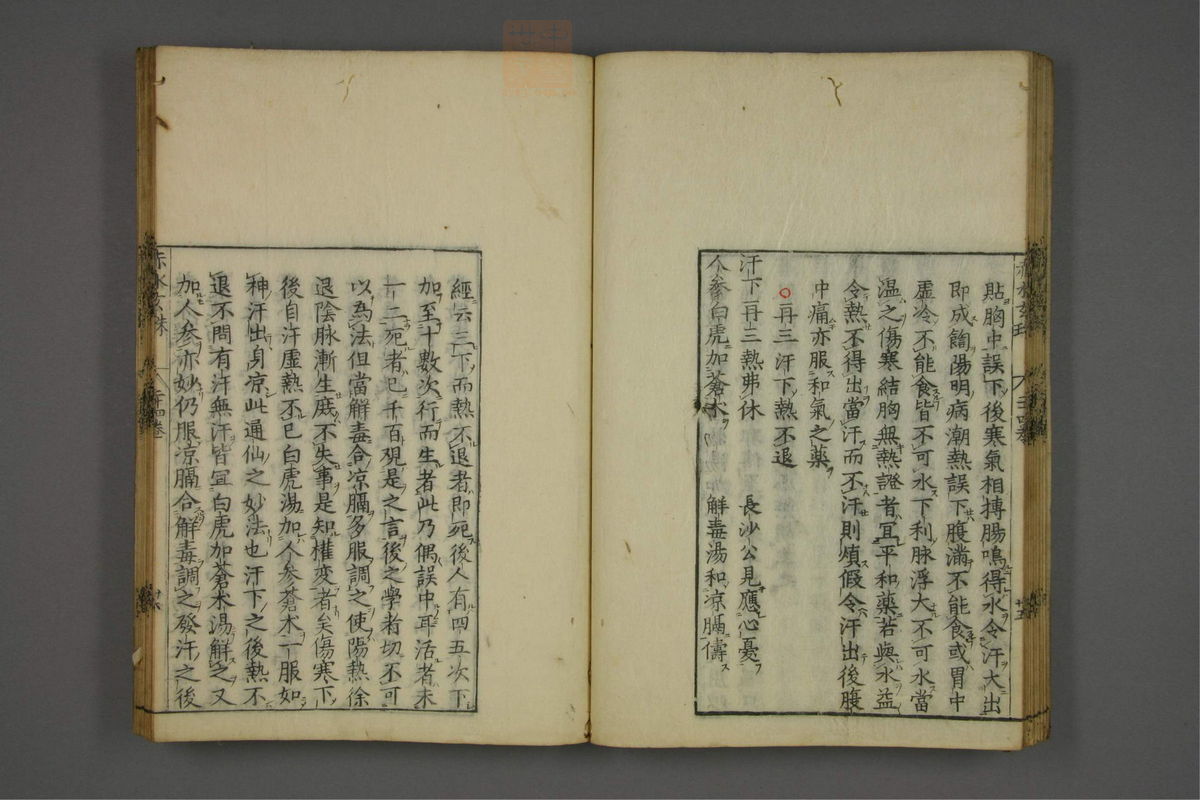 貼胸中誤下後寒氣相搏腸鳴得水令汗大出
即成餡陽明病潮熱誤下腹滿不能食或胃中
虛冷不能食皆不可水下利脉浮大不可水當
温之傷寒結胸無熱證者宜平和藥若與水益
令熱不得出當汗而不汗則煩假令汗出後腹
中痛亦服和氣之藥
○再三汗下熱不退
汗下再三熱弗休 長沙公見應心憂
人參白虎加蒼朮 解毒湯和凉膈儔
經云三下而熱不退者即死後人有四五次下
加至十數次行而生者此乃偶誤中耳活者未
一二死者已千百覌是之言後之學者切不可
以為法但當解毒合凉膈多服調之使陽熱徐
退陰脉漸生庶不失事是知權变者矣傷寒下
後自汗虛熱不已白虎湯加人参蒼朮一服如
神汗出身凉此通仙之妙法也汗下之後熱不
退不問有汗無汗皆宜白虎加蒼朮湯解之又
加人参亦妙仍服凉膈合解毒調之發汗之後
赤水玄珠 二十四卷